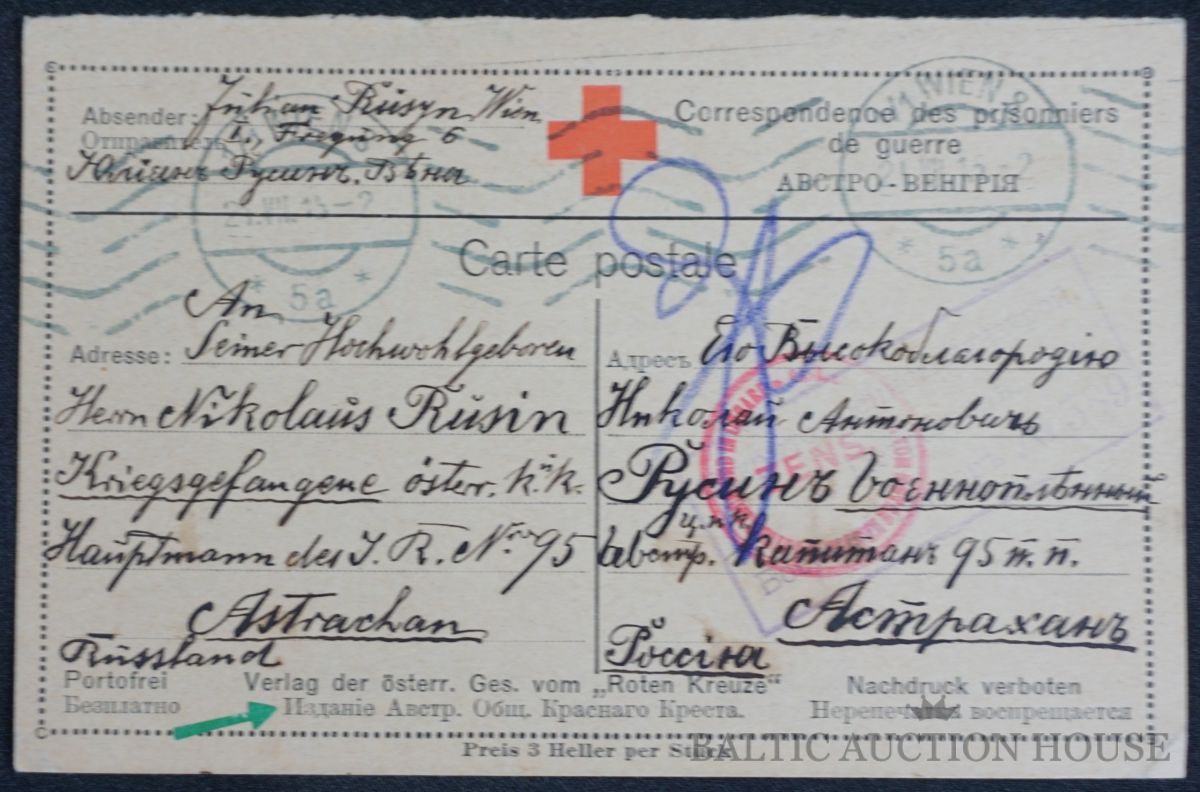 Absender: Julian Rusyn, Wien
I., Freyung 6
Отправитель
Юліанъ Русинъ. Вѣна
Correspondence des prisonniers
de guerre
АВСТРО-ВЕНГРІЯ
WIEN
21.VII.15-2
* 5a *
1 WIEN
* 5a *
Carte postale
An
Adresse: Seiner Hochwohlgeboren
Herrn Nikolaus Rusin
Kriegsgefangene österr. k.u.k.
Hauptmann des I. R. Nro 95
Astrachan
Russland
Адресъ Его Высокоблагородію
Николай Антоновичъ
Русинъ военноплѣнный
ц.и к.
австр. капитанъ 95 п. п.
Астраханъ
Россія
ZENS
Portofrei
Безплатно
Verlag der österr. Ges. vom „Roten Kreuze“
Изданіе Австр. Общ. Краснаго Креста.
Nachdruck verboten
воспрещается
Preis 3 Heller per Stück
BALTIC AUCTION HOUSE